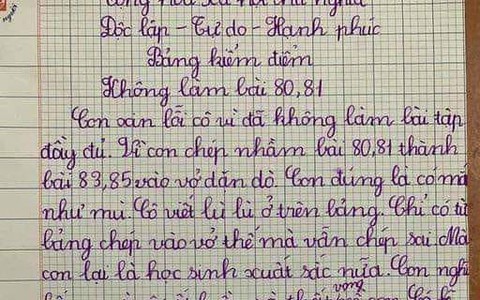 Độc lập - Tự do - Hạnh phúc
Bảng kiểm điểm
Không làm bài 80,81
Con xin lỗi cô vì đã không làm bài tập
đầy đủ. Vì con chép nhầm bài 80,81 thành
bài 83,85 vào vở dặn dò. Con đúng là có mắ
như mù. Cô viết lù lù ở trên bảng. Chỉ có từ
bảng chép vào vở thế mà vẫn chép sai. Mà
con lại là học sinh xuất sắc nữa. Con nghĩ